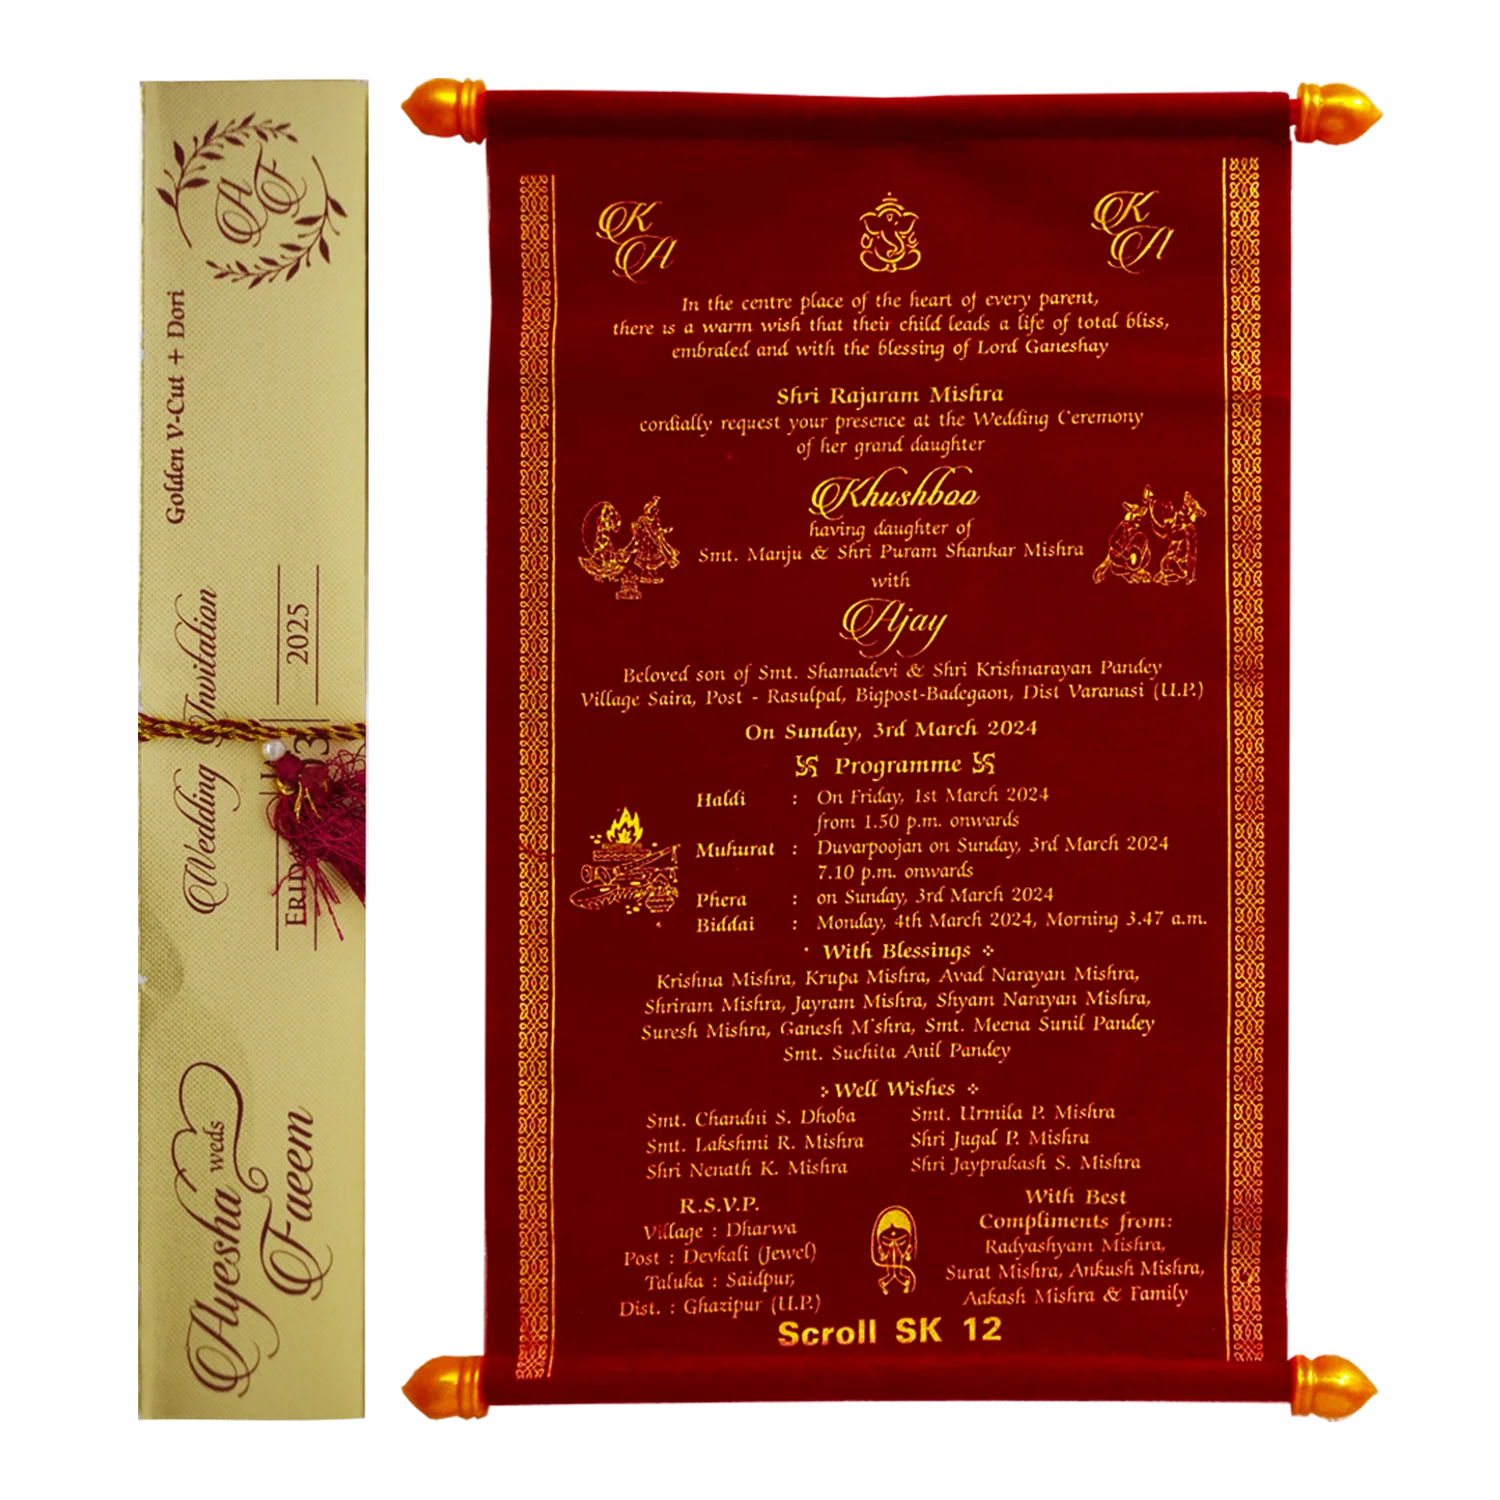 AF
Golden V-Cut + Dori
Wedding Invitation
2025
Ayesha weds
Faeem
K A
K A
In the centre place of the heart of every parent,
there is a warm wish that their child leads a life of total bliss,
embraled and with the blessing of Lord Ganeshay
Shri Rajaram Mishra
cordially request your presence at the Wedding Ceremony
of her grand daughter
Khushboo
having daughter of
Smt. Manju & Shri Puram Shankar Mishra
with
Ajay
Beloved son of Smt. Shamadevi & Shri Krishnarayan Pandey
Village Saira, Post - Rasulpal, Bigpost-Badegaon, Dist Varanasi (U.P.)
On Sunday, 3rd March 2024
卐 Programme 卐
Haldi : On Friday, 1st March 2024
from 1.50 p.m. onwards
Muhurat : Duvarpoojan on Sunday, 3rd March 2024
7.10 p.m. onwards
Phera : on Sunday, 3rd March 2024
Biddai : Monday, 4th March 2024, Morning 3.47 a.m.
With Blessings
Krishna Mishra, Krupa Mishra, Avad Narayan Mishra,
Shriram Mishra, Jayram Mishra, Shyam Narayan Mishra,
Suresh Mishra, Ganesh M'shra, Smt. Meena Sunil Pandey
Smt. Suchita Anil Pandey
Well Wishes
Smt. Chandni S. Dhoba
Smt. Lakshmi R. Mishra
Shri Nenath K. Mishra
Smt. Urmila P. Mishra
Shri Jugal P. Mishra
Shri Jayprakash S. Mishra
R.S.V.P.
Village : Dharwa
Post : Devkali (Jewel)
Taluka : Saidpur,
Dist. : Ghazipur (U.P.)
With Best
Compliments from:
Radyashyam Mishra,
Surat Mishra, Ankush Mishra,
Aakash Mishra & Family
Scroll SK 12